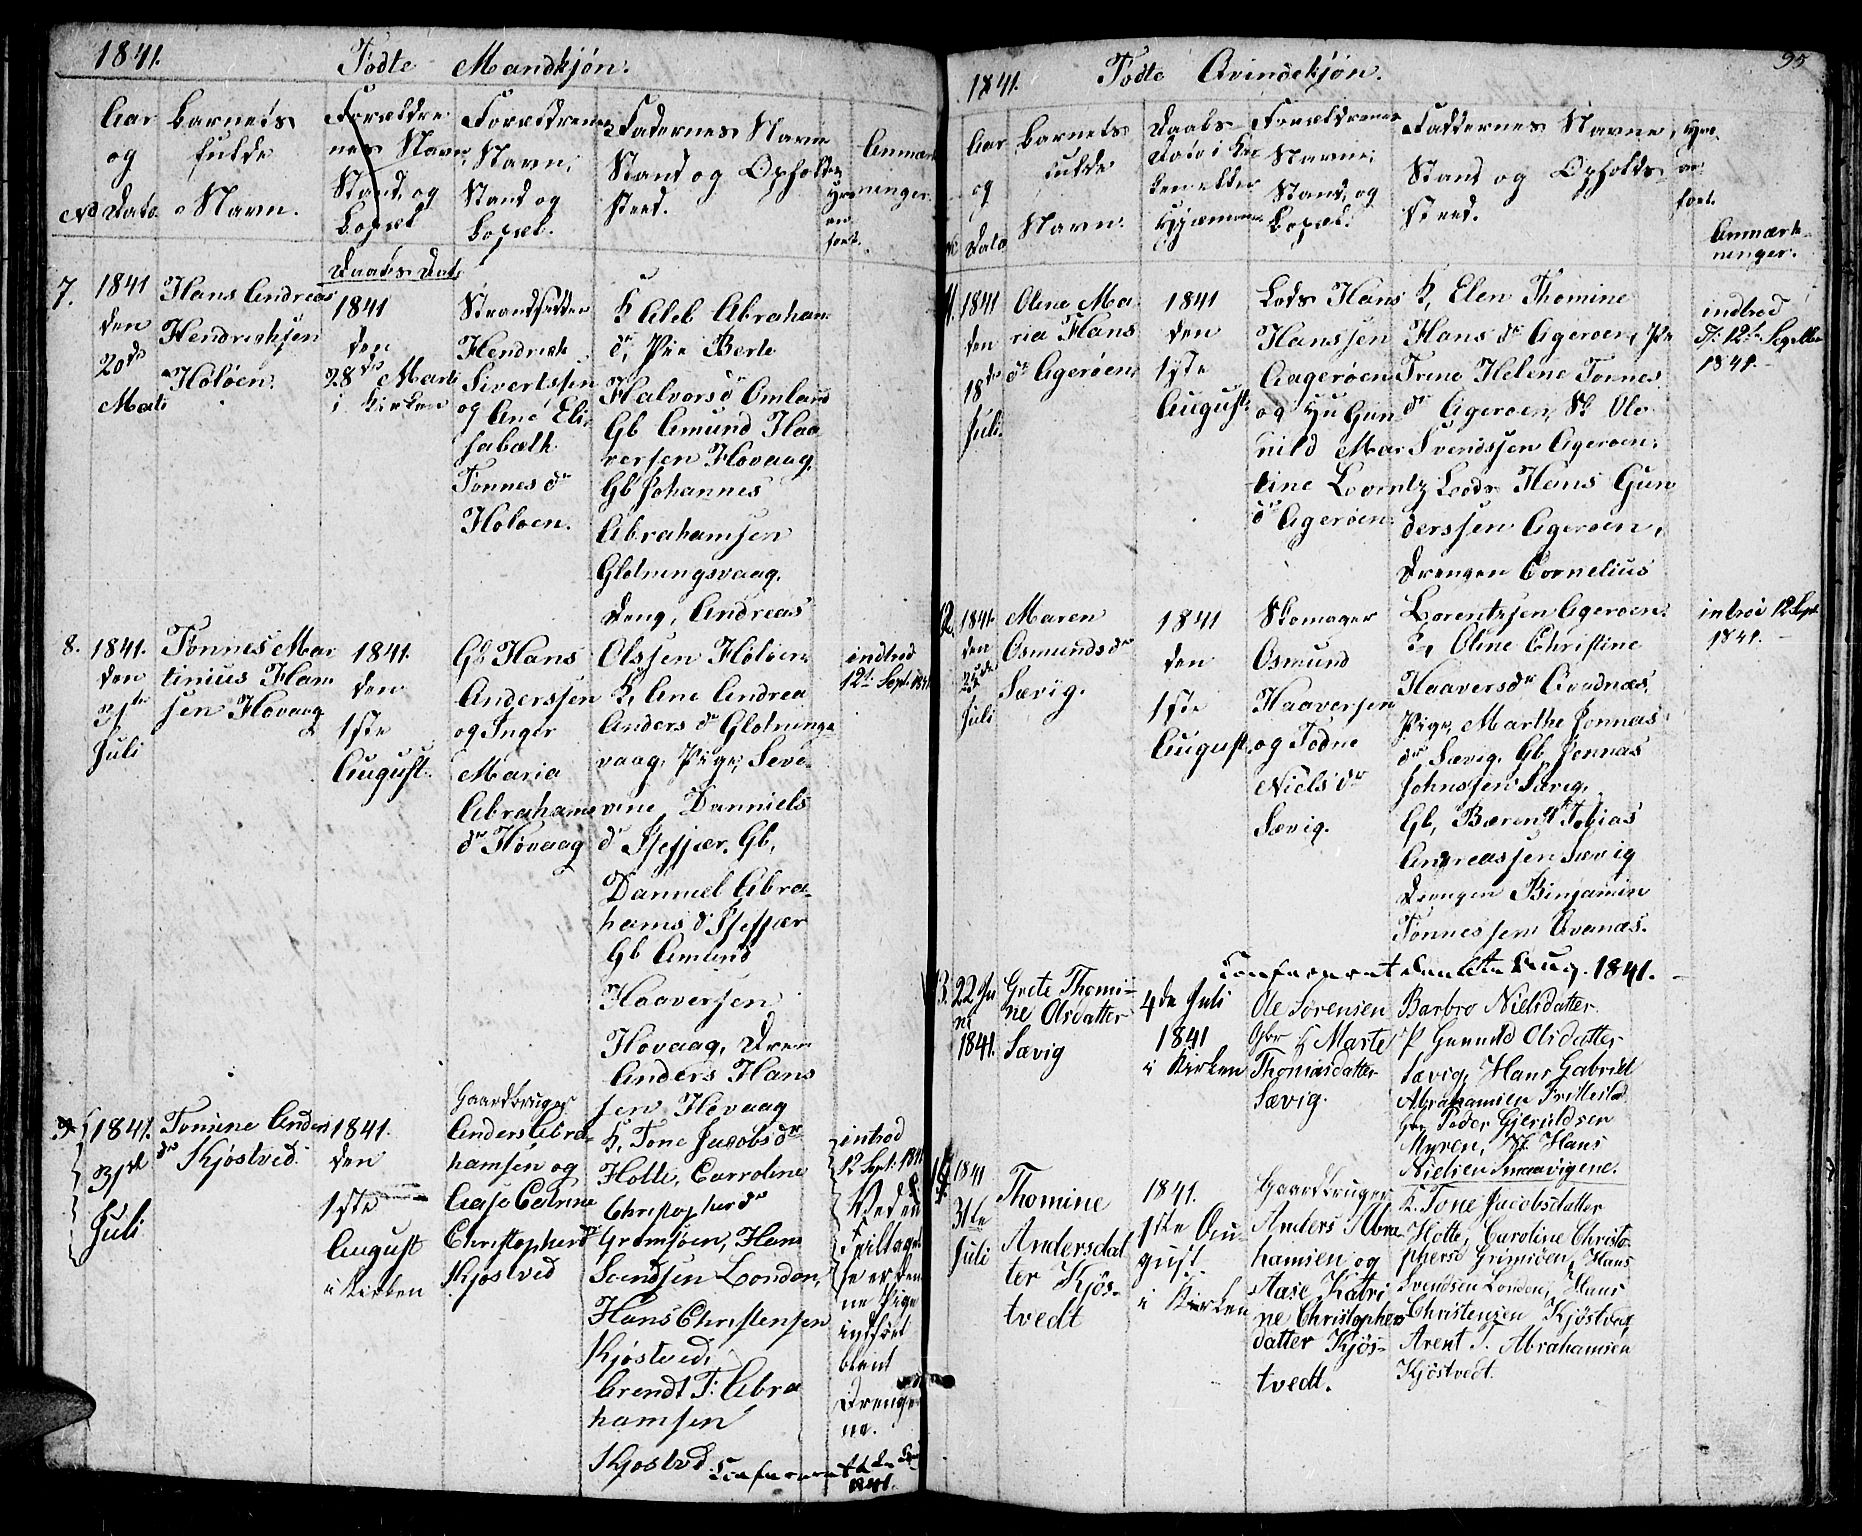 1841.
Fødte Mandkjøn.
No
Aar
og
Dato
Barnets
fulde
Navn.
Forældre
nes Navn,
Stand og
Bopæl
Daabs Dato
Forældrenes
Navn,
Stand og
Bopæl.
Faddernes Navn
Stand og Opholds
sted.
Anmærk
ninger.
7.
1841
den
20de
Marti
Hans Andreas
Hendrichsen
Høløen.
1841
den
28de Marti
i Kirken
Strandsidder
Hendrich
Sivertssen
og Ane Eli
sabæth
Tønnes dr
Høløen.
K Aleb Abraham
dr, Pie Berte
Halvorsdr Omland
Gb Amund Haa
versen Hovaag,
Gb Johannes
Abrahamsen
Glotningsvaag,
Deng, Andreas
Olssen Høløen
8.
1841.
den
31te
Juli
Tønnes Mar
tinius Han
sen Hovaag
1841.
den
1ste
August.
Gb Hans
Anderssen
og Inger
Maria
Abrahams
dr Høvaag
K, Ane Andrea
Anders dr Glotnings
vaag, Pige, Seve
rine Danniels
dr Isefjær, Gb,
Danniel Abra-
hams dr Isefjær
Gb Amund
Haaversen
Hovaag, Dren
Anders Hans
sen Hovaag
indtrod
12te Sept. 1841
9.
1841.
31te
Juli
Tomine Anders
dr Kjøstved.
1841.
den
1ste
August
i Kirken
Gaardbruger
Anders Abra-
hamsen og
Aase Catrine
Christophersdr
Kjøstved
K, Tone Jacobsdr
Holte, Carroline
Christophersdr
Gromsøen, Hans
Svendsen London,
Hans Christensen
Kjøstved,
Arendt T: Abra
hamsen
Kjøstvd
introd
12 Sept. 1841
Ved en
Feiltagel
se er den
ne Pige
indført
blant
Drenge
ne.
1841.
1841.
Fødte Qvindekjøn.
95
Aar
og
Dato
Barnets
fulde
Navn.
Daabs
Dato i Kir
ken eller
Hjemme
Forældrenes
Navne,
Stand, og
Bopæl.
Faddernes Navne,
Stand og Opholds-
Sted.
Anmærk-
ninger.
11.
1841
den
18de
Juli.
Oline Ma
ria Hans
dr Agerøen,
1841
den
1ste
August
Lods Hans
Hanssen
Aagerøen
og Hu Gun
nild Mar
tine Lorentz
dr Agerøen
K, Elen Thomine
Hans dr Agerøen, Pie
Trine Helene Tønnes
dr Agerøen, St Ole
Svendssen Agerøen,
Loods Hans Gun
derssen Agerøen,
Drengen Cornelius
Lorentzsen Agerøen.
indtrod
D: 12te Septbr
1841.
12.
1841.
den
25de
Juli
Maren
Osmundsdr
Sævig.
1841
den
1ste
August
Skomager
Osmund
Haaversen
og Todne
Niels dr
Sævig.
K, Oline Christine
Haaversdr Qvadnæs,
Pige, Marthe Jonnas
dr Sævig, Gb, Jonnas
Johnssen Sævig,
Gb, Bærendt Tobias
Andreassen Sævig
Drengen Binjamin
Tønnessen Qvanæs.
introd 12 Sept
1841.
1841.
13.
22 Ju
ni
1841.
Grete Thomi-
ne Olsdatter
Sævig
4de Juli
1841
i Kirken
Ole Sørensen
Gbr K Marte
Thomasdatter
Sævig.
Barbro Nielsdatter
P Gunnild Olsdatter
Sævig, Hans Gabriel
Abrahamsen Trillestad
Gbr Peder Gjeruldsen
Myren, Hans
Nielsen Smaavigene.
14.
1841
31te
Juli
Thomine
Andersdat
ter Kjøs-
tvedt
1841.
1ste Au-
gust
i Kirken
Gaardbruger
Anders Abra
hamsen og
Aase Katri
ne Christophers
datter Kjøs-
tvedt.
K. Tone Jacobsdatter
Holte, Caroline Christo-
phersd Grimsøen, Hans
Svendsen London, Hans
Christensen Kjøstvedt,
Arent T. Abrahamsen
Kjøstvedt.